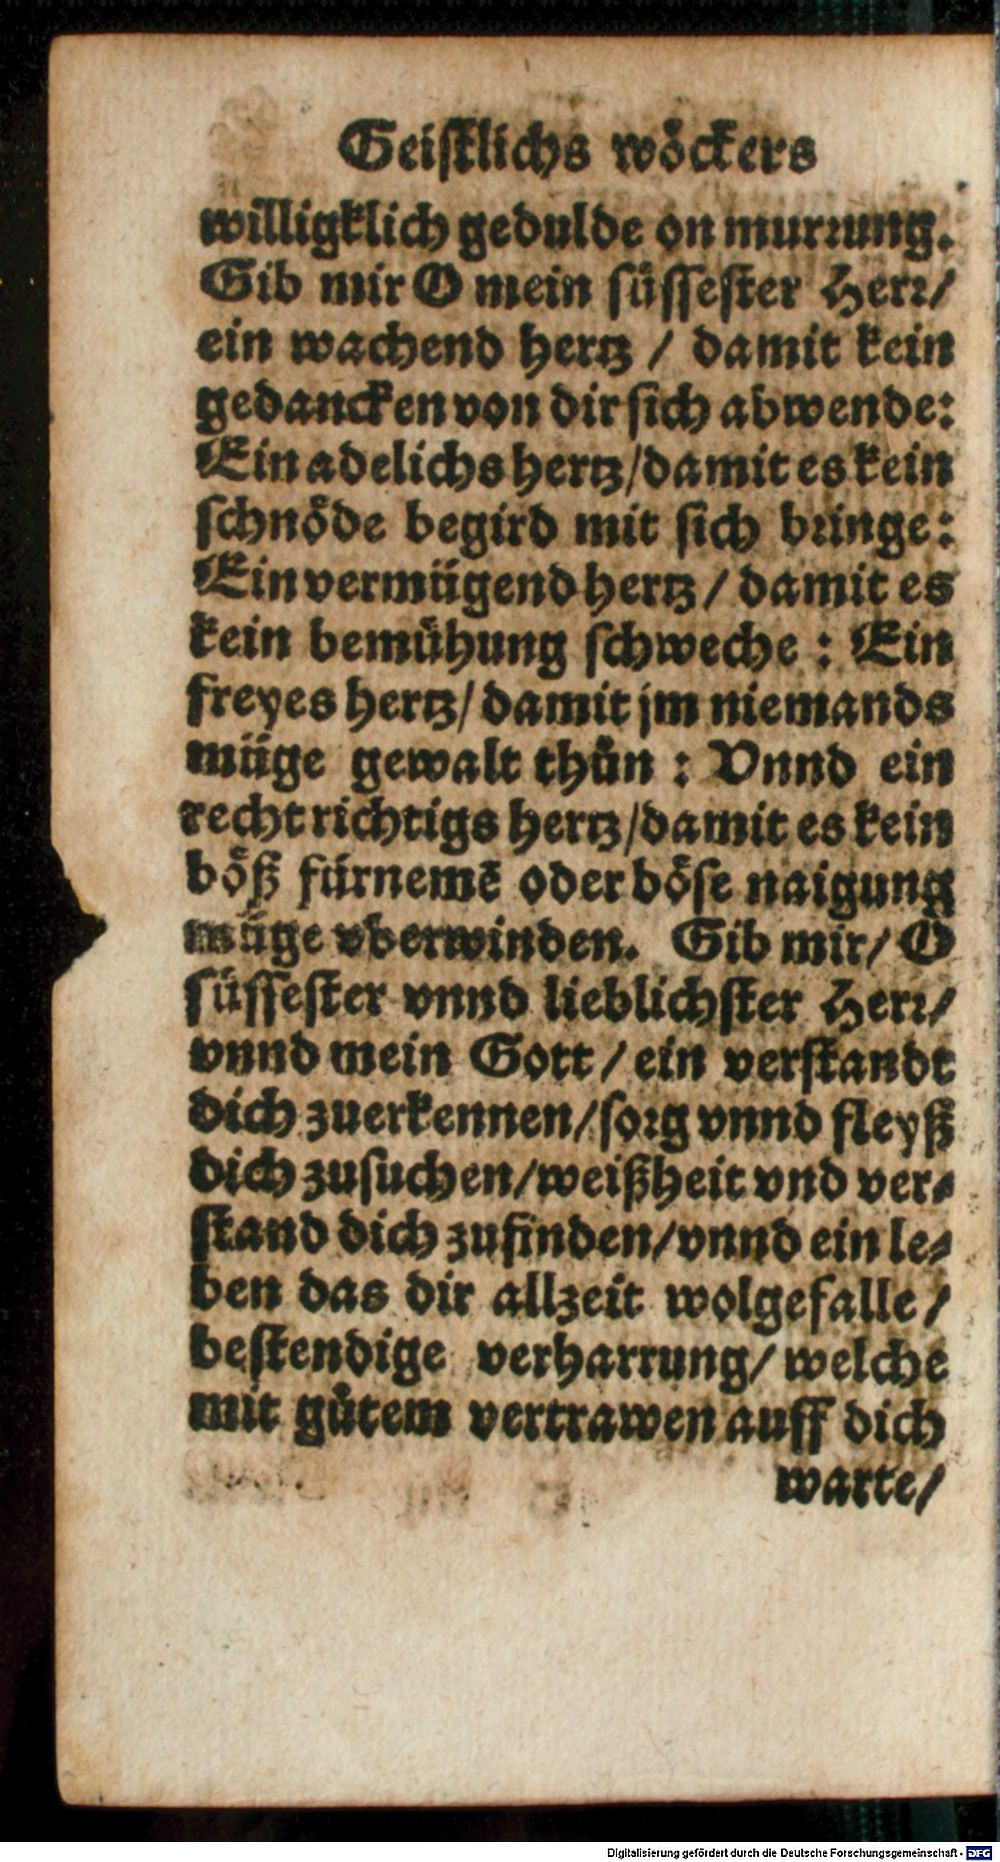 Geiſtlichs wöckers
willigklich gedulde on murꝛung.
Gib mir O mein ſüſſeſter Herꝛ/
ein wachend hertz / damit kein
gedancken von dir ſich abwende:
Ein adelichs hertz/damit es kein
ſchnöde begird mit ſich bꝛinge:
Ein vermügend hertz / damit es
kein bemühung ſchweche : Ein
freyes hertz/ damit jm niemands
müge gewalt thůn : Vnnd ein
recht richtigs hertz/damit es kein
böß fürnemē oder böſe naigung
müge vberwinden. Gib mir/ O
ſüſſeſter vnnd lieblichſter Herꝛ/
vnnd mein Gott / ein verſtandt
dich zuerkennen/ſoꝛg vnnd fleyß
dich zuſuchen/weißheit vnd ver⸗
ſtand dich zufinden/vnnd ein le⸗
ben das dir allzeit wolgefalle /
beſtendige verharrung/ welche
mit gůtem vertrawen auff dich
warte/
Digitalisierung gefördert durch die Deutsche Forschungsgemeinschaft - DFG